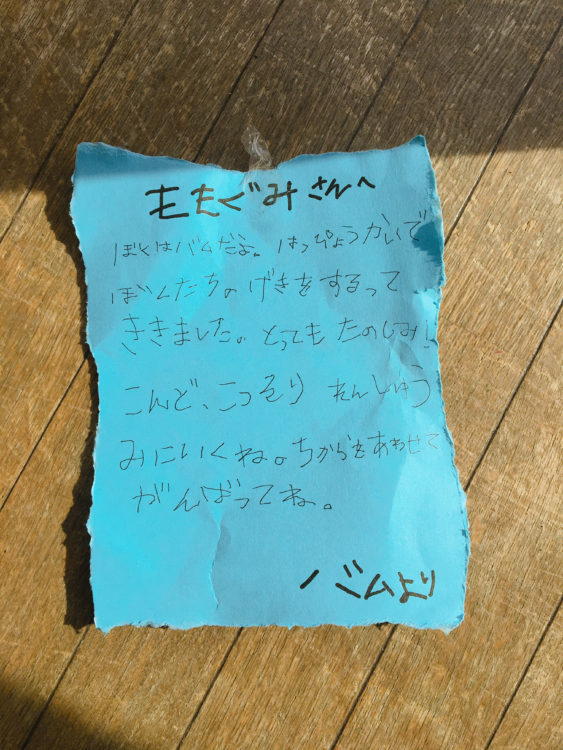 ももぐみさんへ
ぼくはバムだよ。はっぴょうかいで
ぼくたちの げきをするって
ききました。とっても たのしみ!
こんど、こっそり れんしゅう
みにいくね。ちからをあわせて
がんばってね。
バムより